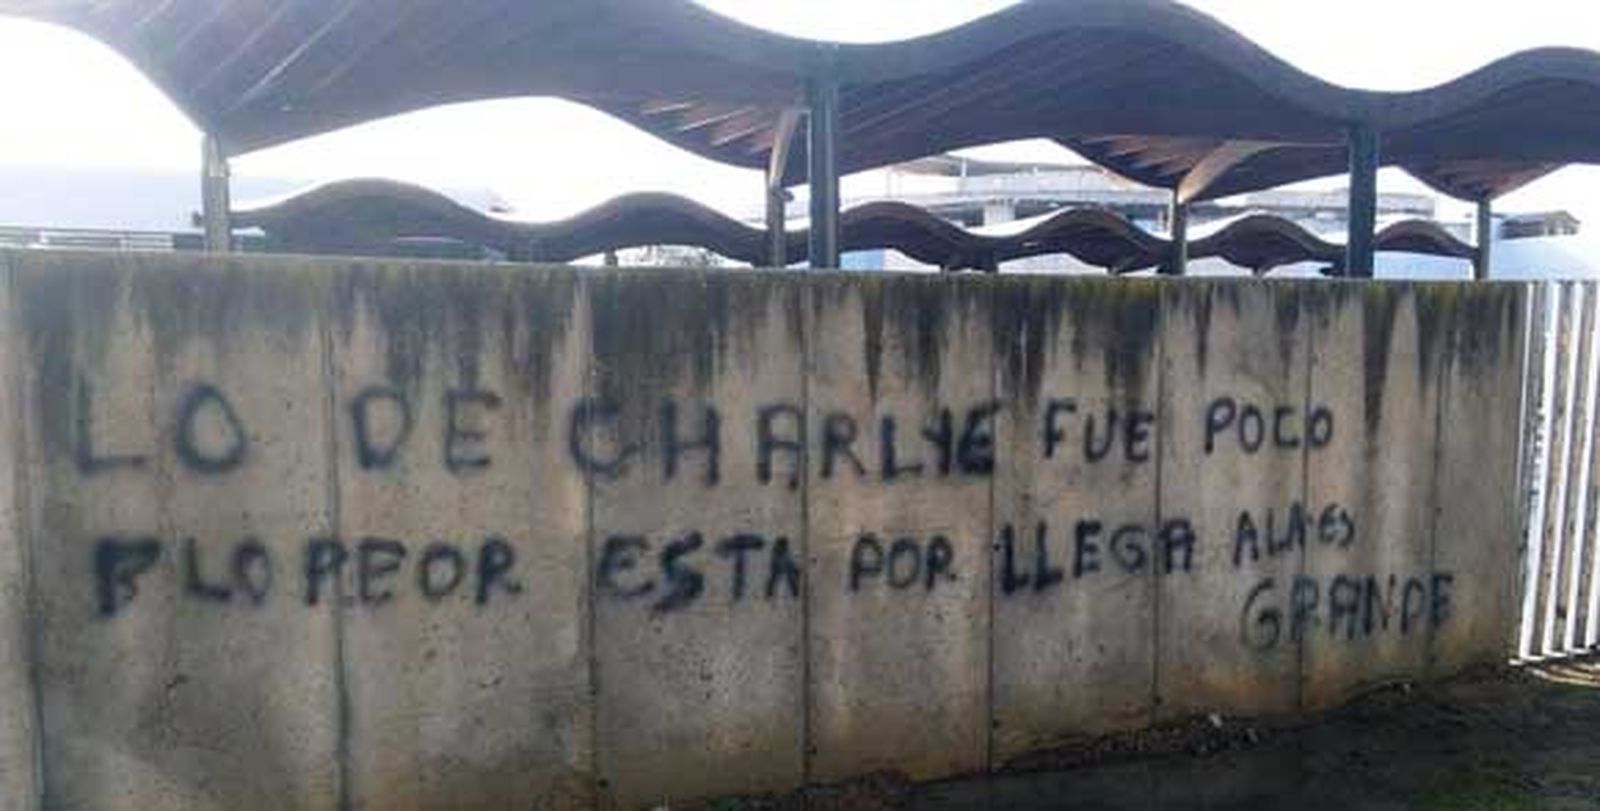 LO DE CHARLYE FUE POCO
LO PEOR ESTA POR LLEGA ALA ES
GRANDE